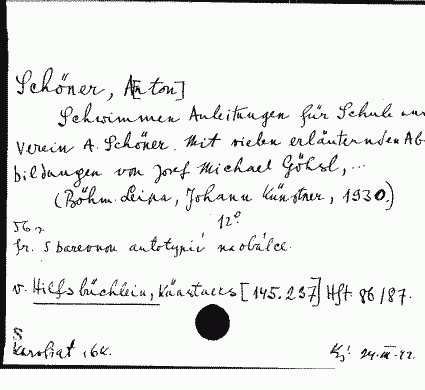 Schöner, A[nton]
Schwimmen Anleitungen für Schule und
Verein A. Schöner. Mit vielen erläuternden Ab-
bildungen von Josef Michael Göhsl, ...
(Böhm. Leipa, Johann Künstner, 1930.)
56 s. 12°
fr. s barevnou autotypií na obálce.
v. Hilfsbüchlein, Künstners [145.237] Hft 86/87.
S